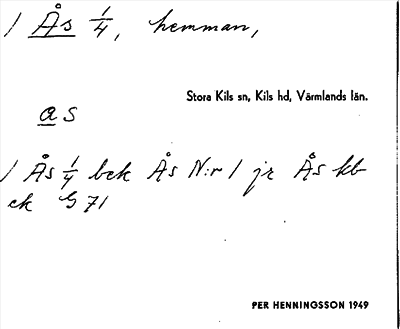 / Ås 1/4, hemman,
Stora Kils sn, Kils hd, Värmlands län.
as
/ Ås 1/4 bek Ås N:r 1 jr Ås kb
ek G 71
PER HENNINGSSON 1949